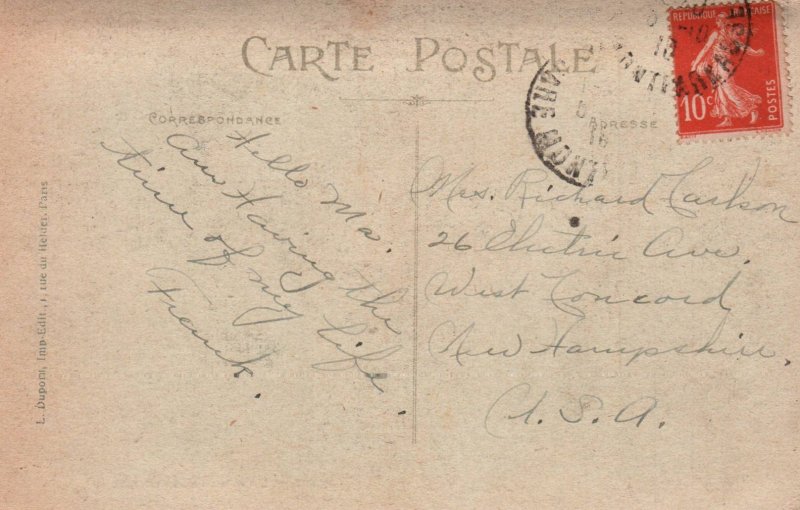 CARTE POSTALE
CORRESPONDANCE
ADRESSE
REPUBLIQUE FRANÇAISE
10c
POSTES
Hello Ma.
Am Having the
time of my life.
Frank.
Mrs. Richard Carlson
26 Electric Ave.
West Concord
New Hampshire.
U.S.A.
L. Dupont, Imp-Edit., 1, rue du Helder, Paris